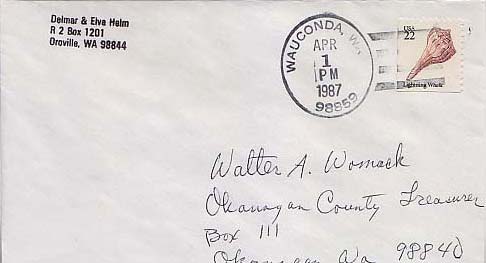 Delmar & Elva Helm
R 2 Box 1201
Oroville, WA 98844
WAUCONDA, WA
APR
1
PM
1987
98859
USA
22
Lightning Whelk
Walter A. Womack
Okanogan County Treasurer
Box 111
Okanogan Wa 98840